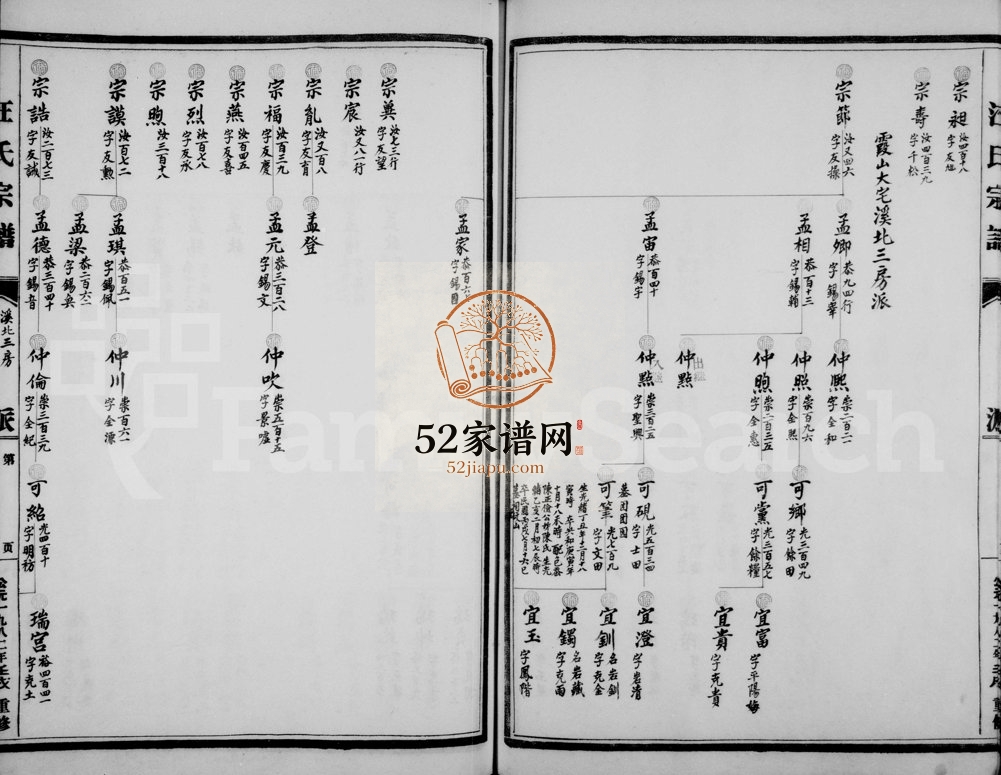 宗昶 汝四百十八
宗壽 汝四百三九 字千松
霞山大宅溪北三房派
宗節 汝又四六 字友操
孟卿 恭九四行 字錫峯
孟相 恭百十三
孟宙 恭百四十 字錫宇
孟家
仲熈 崇二百二 字全和
仲照 崇百九六 字全熙
仲煦 崇二百三五 字全惠
仲點
仲點 崇三百二五 字聖興
可鄉 光三百四九 字餘田
可黨 光三百五七 字餘糧
可硯 光五百三四 字士田
墓团团圆
可筆 光七百九 字文田
宜富
宜貴 字克貴
宜澄 字岩清
宜釧 名岩釧 字克金
宜鐲 名岩鐵 字克雨
宜玉 字鳳階
宗龚 汝七三行 字友望
宗宸 汝又八一行
宗胤 汝又百八 字友育
宗福 汝百三九 字友慶
宗燕 汝百四五 字友喜
宗烈 汝百七八 字友承
宗煦 汝三百十八
宗謨 汝百七二 字友勲
宗誥 汝二百七三 字友誠
孟登
孟元 恭三百二八 字錫文
孟琪 恭百五一 字錫佩
孟梁 恭二百六二 字錫奂
孟德 恭三百四十 字錫音
仲吹 崇五百十五 字景嘘
仲川 崇百六一 字全源
仲倫 崇三百三九 字全紀
可紹 光四百十 字明礽
瑞宫 裕四百四一 字克土
汪氏宗譜
溪北三房
派
第
页
重修
52家谱网
52jiapu.com
FamilySearch